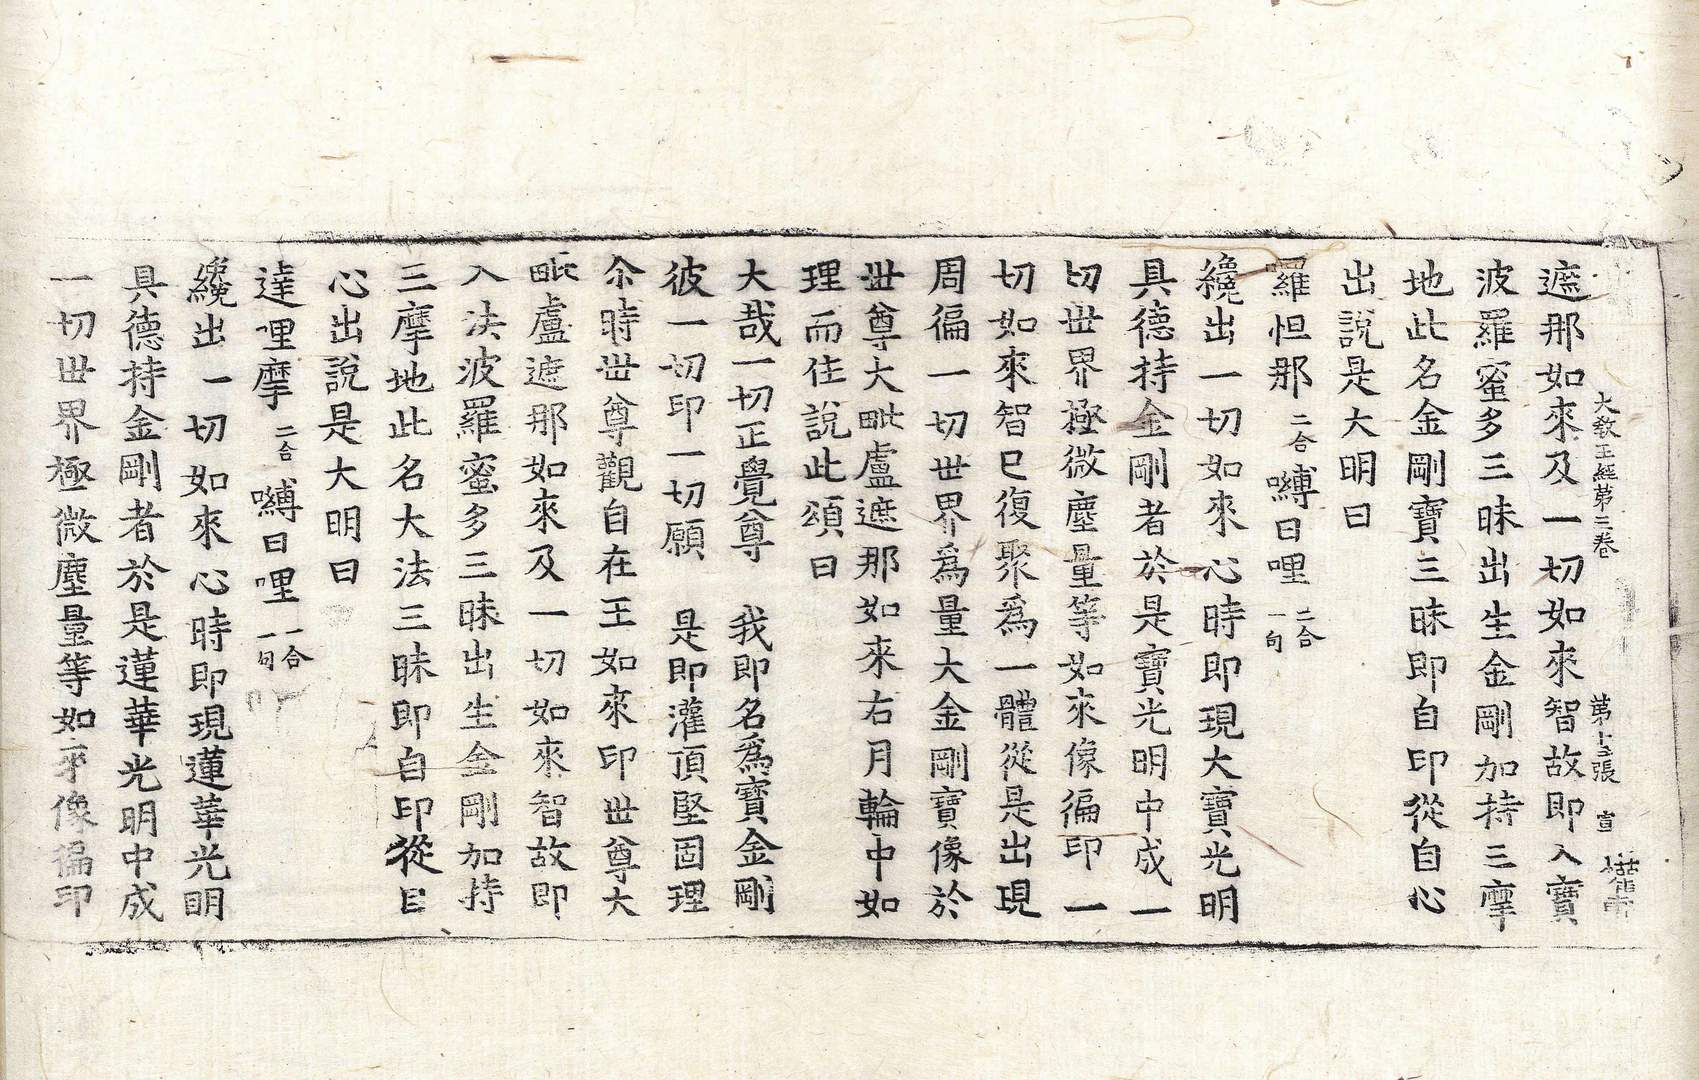 大教王經第三卷 第十三張 宣
遮那如來及一切如來智故即入寶
波羅蜜多三昧出生金剛加持三摩
地此名金剛寶三昧即自印從自心
出說是大明曰
囉怛那二合嚩日哩二合一句
纔出一切如來心時即現大寶光明
具德持金剛者於是寶光明中成一
切世界極微塵量等如來像徧印一
切如來智已復聚為一體從是出現
周徧一切世界爲量大金剛寶像於
世尊大毗盧遮那如來右月輪中如
理而住說此頌曰
大哉一切正覺尊 我即名爲寶金剛
彼一切印一切願 是即灌頂堅固理
尒時世尊觀自在王如來印世尊大
毗盧遮那如來及一切如來智故即
入决波羅蜜多三昧出生金剛加持
三摩地此名大法三昧即自印從自
心出說是大明曰
達哩摩二合嚩日哩二合一句
纔出一切如來心時即現蓮華光明
具德持金剛者於是蓮華光明中成
一切世界極微塵量等如來像徧印